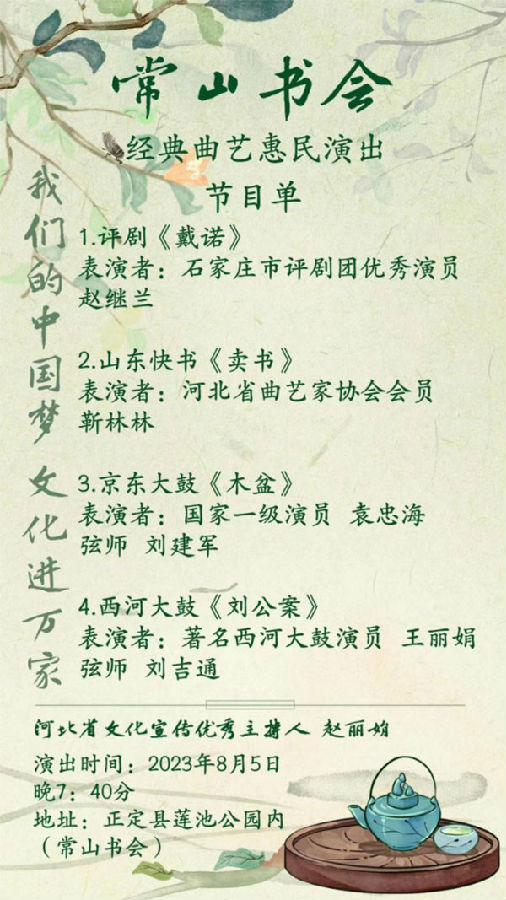 常山书会
经典曲艺惠民演出
节目单
我们的中国梦 文化进万家
1.评剧《戴诺》
表演者：石家庄市评剧团优秀演员
赵继兰
2.山东快书《卖书》
表演者：河北省曲艺家协会会员
靳林林
3.京东大鼓《木盆》
表演者：国家一级演员 袁忠海
弦师 刘建军
4.西河大鼓《刘公案》
表演者：著名西河大鼓演员 王丽娟
弦师 刘吉通
河北省文化宣传优秀主持人 赵丽娟
演出时间：2023年8月5日
晚7：40分
地址：正定县莲池公园内
（常山书会）